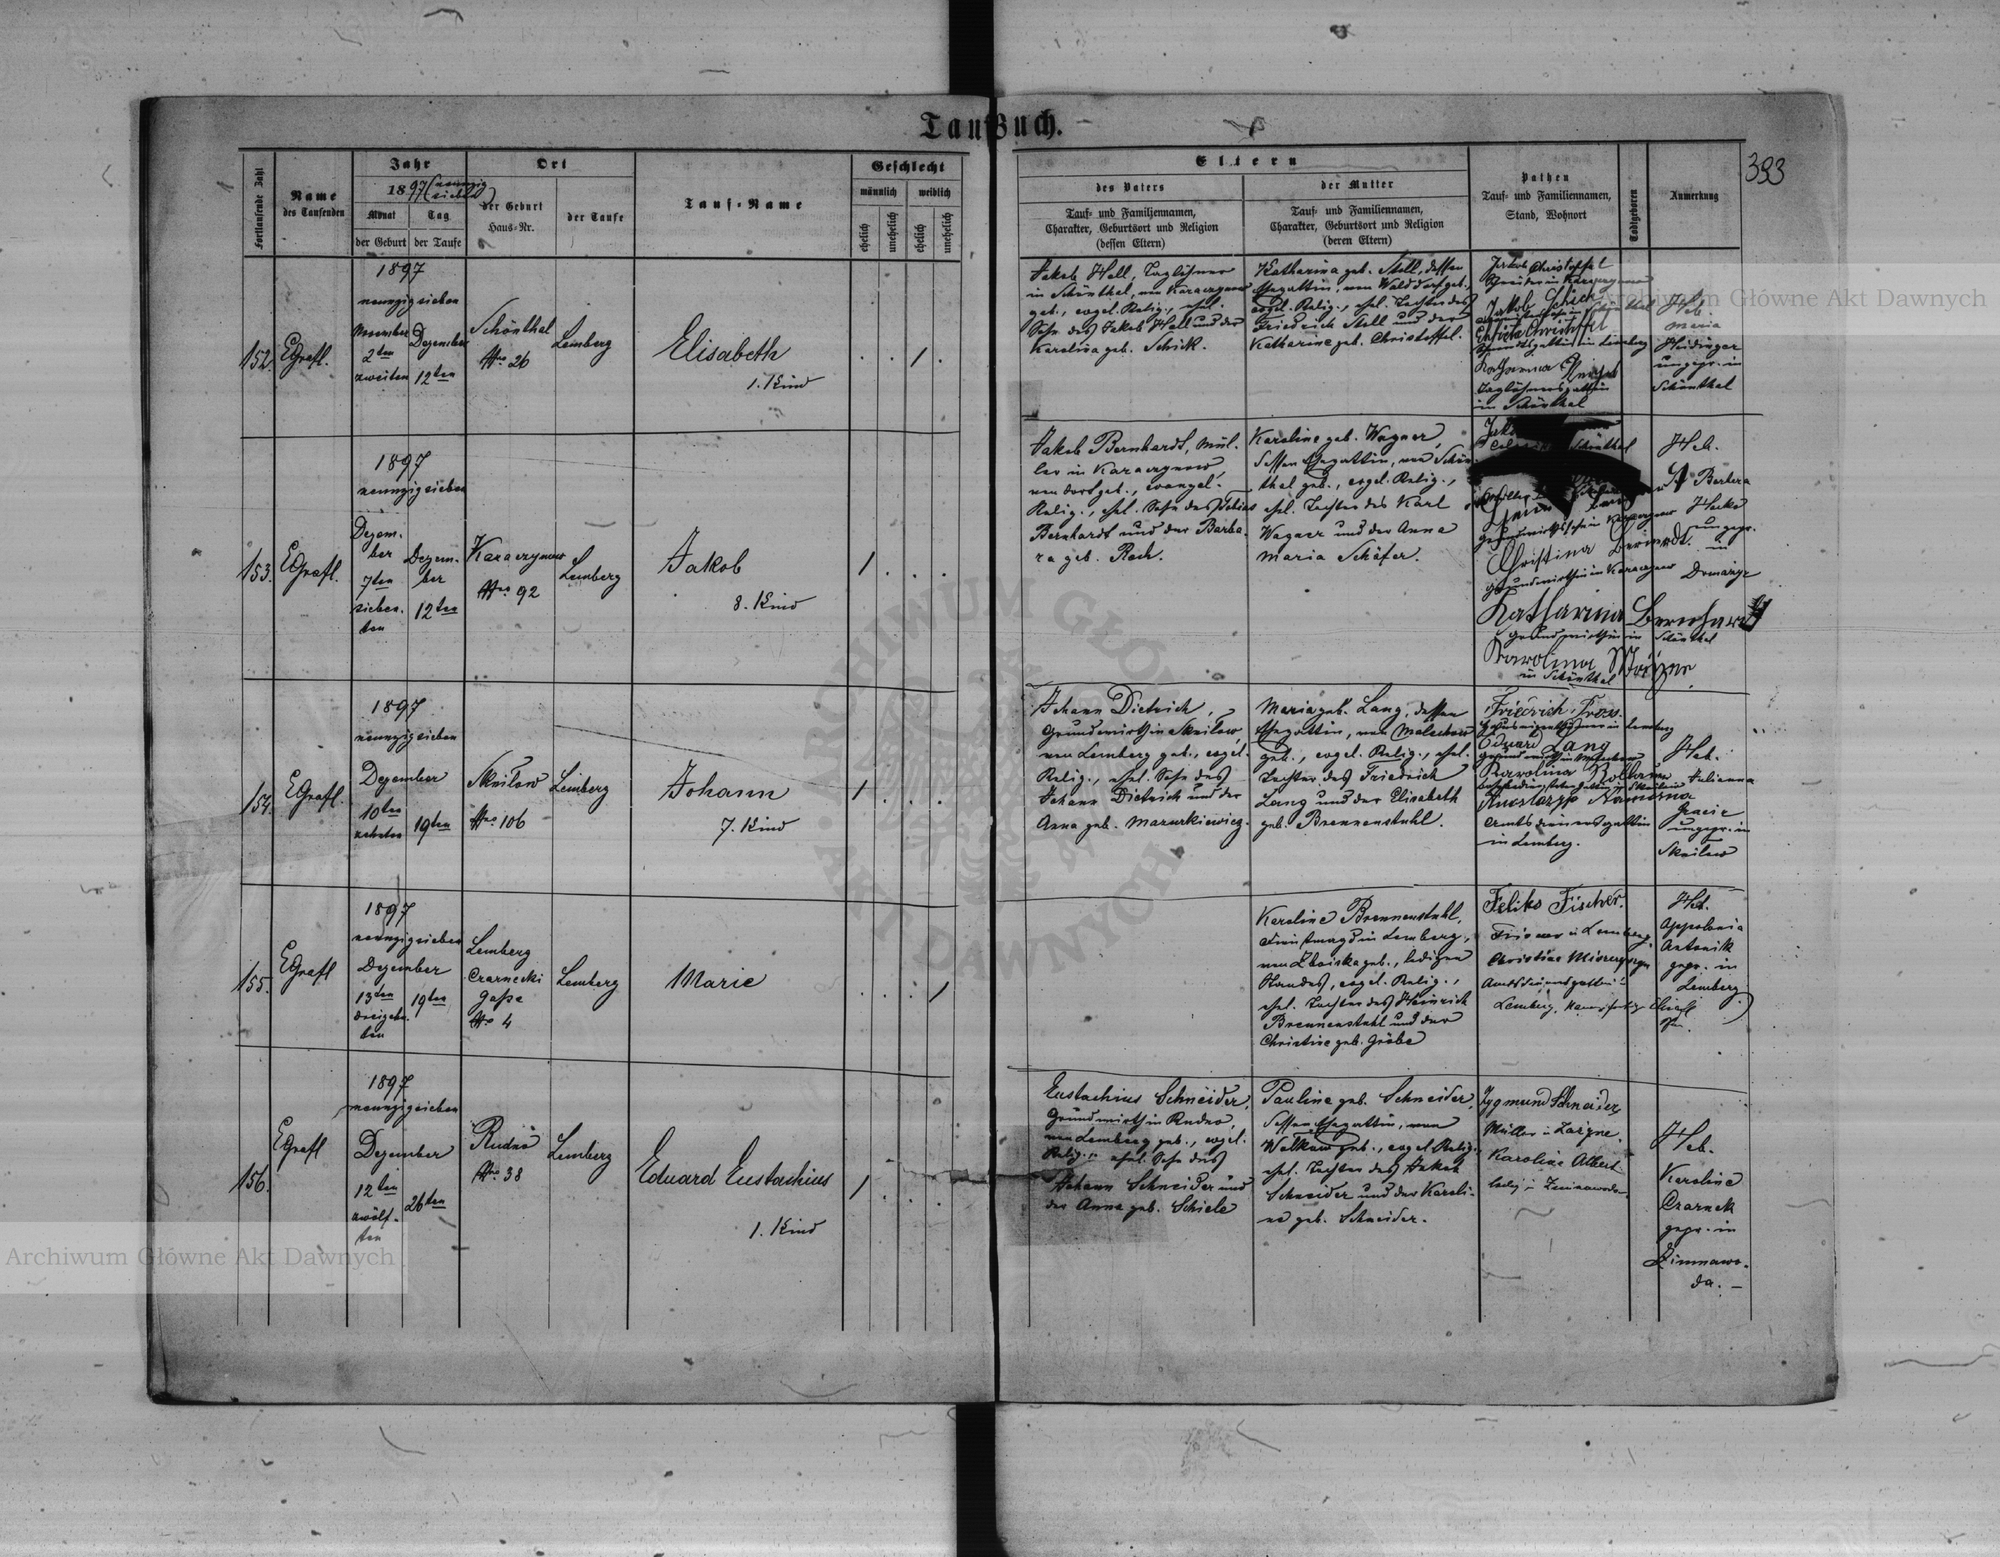 Taufbuch.
393
Fortlaufende Zahl
Name
des Taufenden
Jahr
1897 (neunzig
sieben)
Monat
Tag
der Geburt
der Taufe
Ort
der Geburt
Haus-Nr.
der Taufe
Tauf-Name
Geschlecht
männlich
weiblich
ehelich
unehelich
ehelich
unehelich
Eltern
des Vaters
Tauf- und Familiennamen,
Charakter, Geburtsort und Religion
(dessen Eltern)
der Mutter
Tauf- und Familiennamen,
Charakter, Geburtsort und Religion
(deren Eltern)
Pathen
Tauf- und Familiennamen,
Stand, Wohnort
Todtgeboren
Anmerkung
152.
EGrafl.
1897
neunzigsieben
November
2ten
zweiten
Dezember
12ten
Schönthal
Nro 26
Lemberg
Elisabeth
1. Kind
Jakob Hell, Taglöhner
in Schönthal, von Karaczynow
geb., evgel. Relig., ehel.
Sohn des Jakob Hell und der
Karolina geb. Schik.
Katharina geb. Stell, dessen
Ehegattin, von Walddorf geb.,
evgel. Relig., ehel. Tochter des
Friedrich Stell und der
Katharine geb. Christoffel.
Jakob Christoffel
Jakob Schick
Katharina
Taglöhnersgattin
in Schönthal
Heb.
Maria
Heidinger
ungepr. in
Schönthal
153.
EGrafl.
1897
neunzigsieben
Dezem-
ber
7ten
sieben-
ten
Dezem-
ber
12ten
Karaczynow
Nro 92
Lemberg
Jakob
8. Kind
Jakob Bernhardt, Mül-
ler in Karaczynow,
von dort geb., evangel.
Relig., ehel. Sohn des Tobias
Bernhardt und der Barba-
ra geb. Rech.
Karoline geb. Wagner,
dessen Ehegattin, von Schön-
thal geb., evgel. Relig.,
ehel. Tochter des Karl
Wagner und der Anna
Maria Schäfer.
Schönthal
Christina Bernardt
Grundwirthin in Karaczynow
Katharina Bernhardt
Grundwirthin in Schönthal
Karolina
in Schönthal
Heb.
Barbara
Hecko
ungepr.
in
154.
EGrafl.
1897
neunzigsieben
Dezember
10ten
zehnten
19ten
Sknilow
Nro 106
Lemberg
Johann
7. Kind
Johann Dietrich,
Grundwirth in Sknilow,
von Lemberg geb., evgel.
Relig., ehel. Sohn des
Johann Dietrich und der
Anna geb. Mazurkiewicz.
Maria geb. Lang, dessen
Ehegattin, von Malechow
geb., evgel. Relig., ehel.
Tochter des Friedrich
Lang und der Elisabeth
geb. Brennenstuhl.
Friedrich
Eduard Lang
Karolina
Amtsdienersgattin
in Lemberg.
Heb.
Julianna
ungepr. in
Sknilow
155.
EGrafl
1897
neunzigsieben
Dezember
13ten
dreizehn-
ten
19ten
Lemberg
Czarnecki
Gasse
Nro 4
Lemberg
Marie
Karoline Brennenstuhl,
Dienstmagd in Lemberg,
von Zboiska geb., ledigen
Standes, evgel. Relig.,
ehel. Tochter des Heinrich
Brennenstuhl und der
Christine geb. Gröbe
Feliks Fischer.
in Lemberg.
Christine
Amtsdienersgattin in
Lemberg.
Heb.
Appolonia
Antonik
gepr. in
Lemberg.
156.
EGrafl
1897
neunzigsieben
Dezember
12ten
zwölf-
ten
26ten
Rudno
Nro 38
Lemberg
Eduard Eustachius
1. Kind
Eustachius Schneider,
Grundwirth in Rudno,
von Lemberg geb., evgel.
Relig., ehel. Sohn des
Johann Schneider und
der Anna geb. Schiele
Pauline geb. Schneider,
dessen Ehegattin, von
Wolkow geb., evgel Relig.
ehel. Tochter des Jakob
Schneider und der Karoli-
ne geb. Schneider.
Zygmund Schneider
Müller in
Karoline Albert
ledig in
Heb.
Karoline
Czarnek
gepr. in
Zimnawo-
da. —
Archiwum Główne Akt Dawnych
Archiwum Główne Akt Dawnych
ARCHIWUM GŁÓWNE AKT DAWNYCH